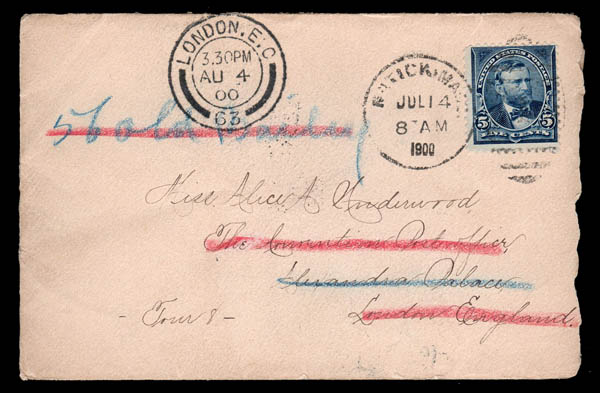 LONDON. E.C
3.30PM
AU 4
00
63
NATICK, MASS.
JUL 14
8 AM
1900
UNITED STATES POSTAGE
5 5
FIVE CENTS
56 Old Bailey
Miss Alice A. Underwood
The Convention Post office,
Alexandra Palace,
- Tour 8 -
London England.